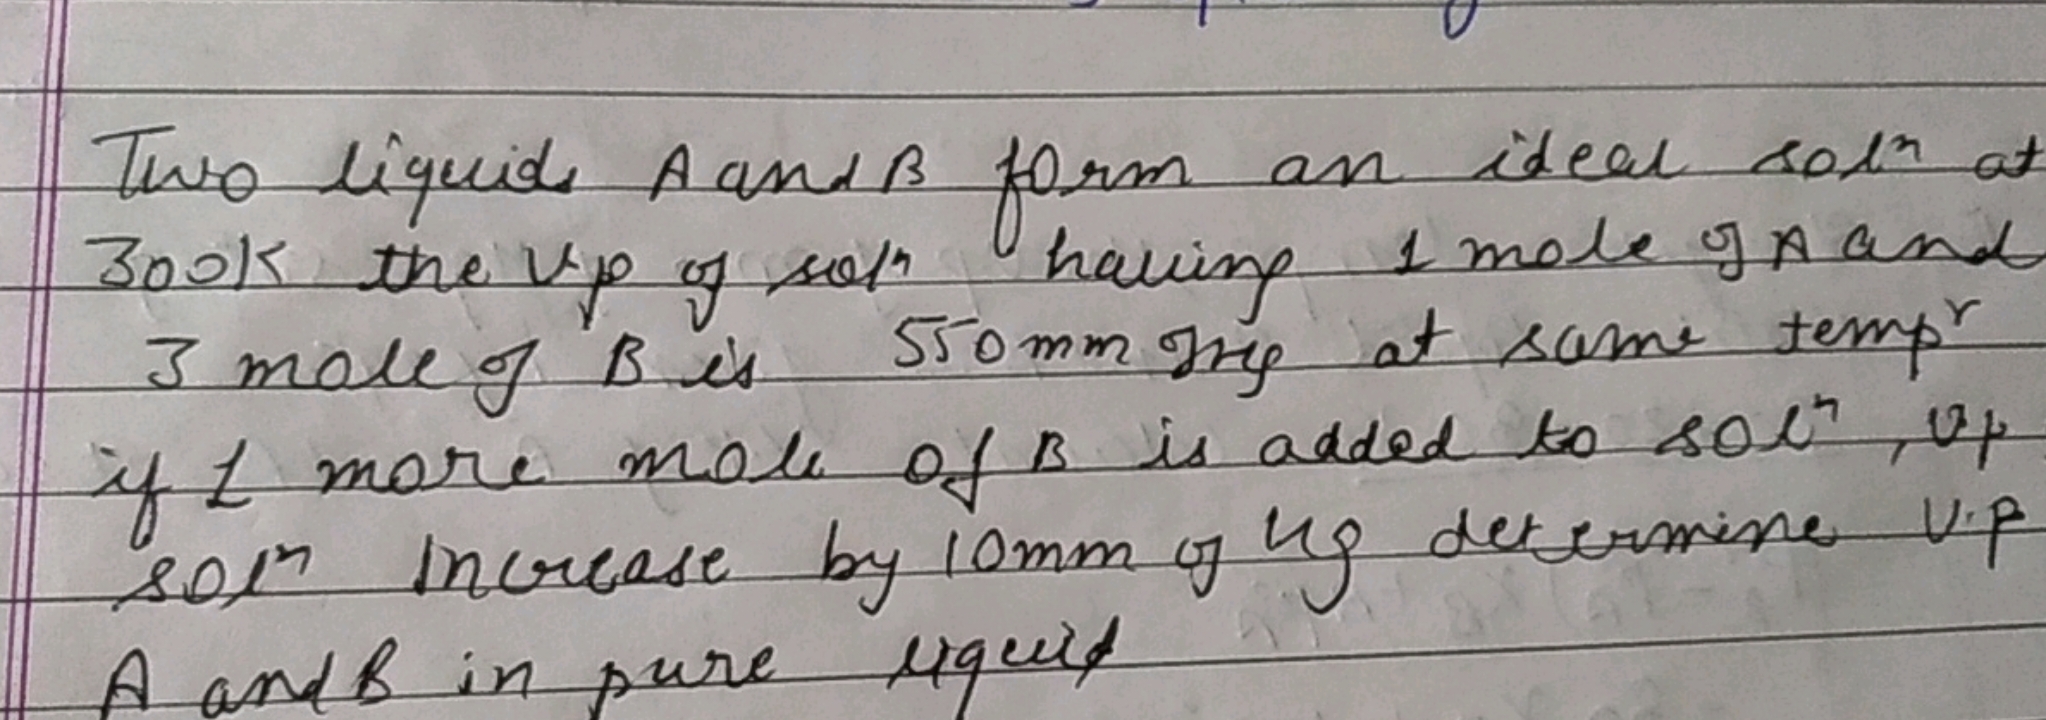 Two liquids A and B form an ideal solⁿ at
300K the V.p of solⁿ having 1 mole of A and
3 mole of B is 550 mm of Hg at same tempʳ
if 1 more mole of B is added to solⁿ, Vp
solⁿ Increase by 10mm of Hg determine V.P
A and B in pure liquid